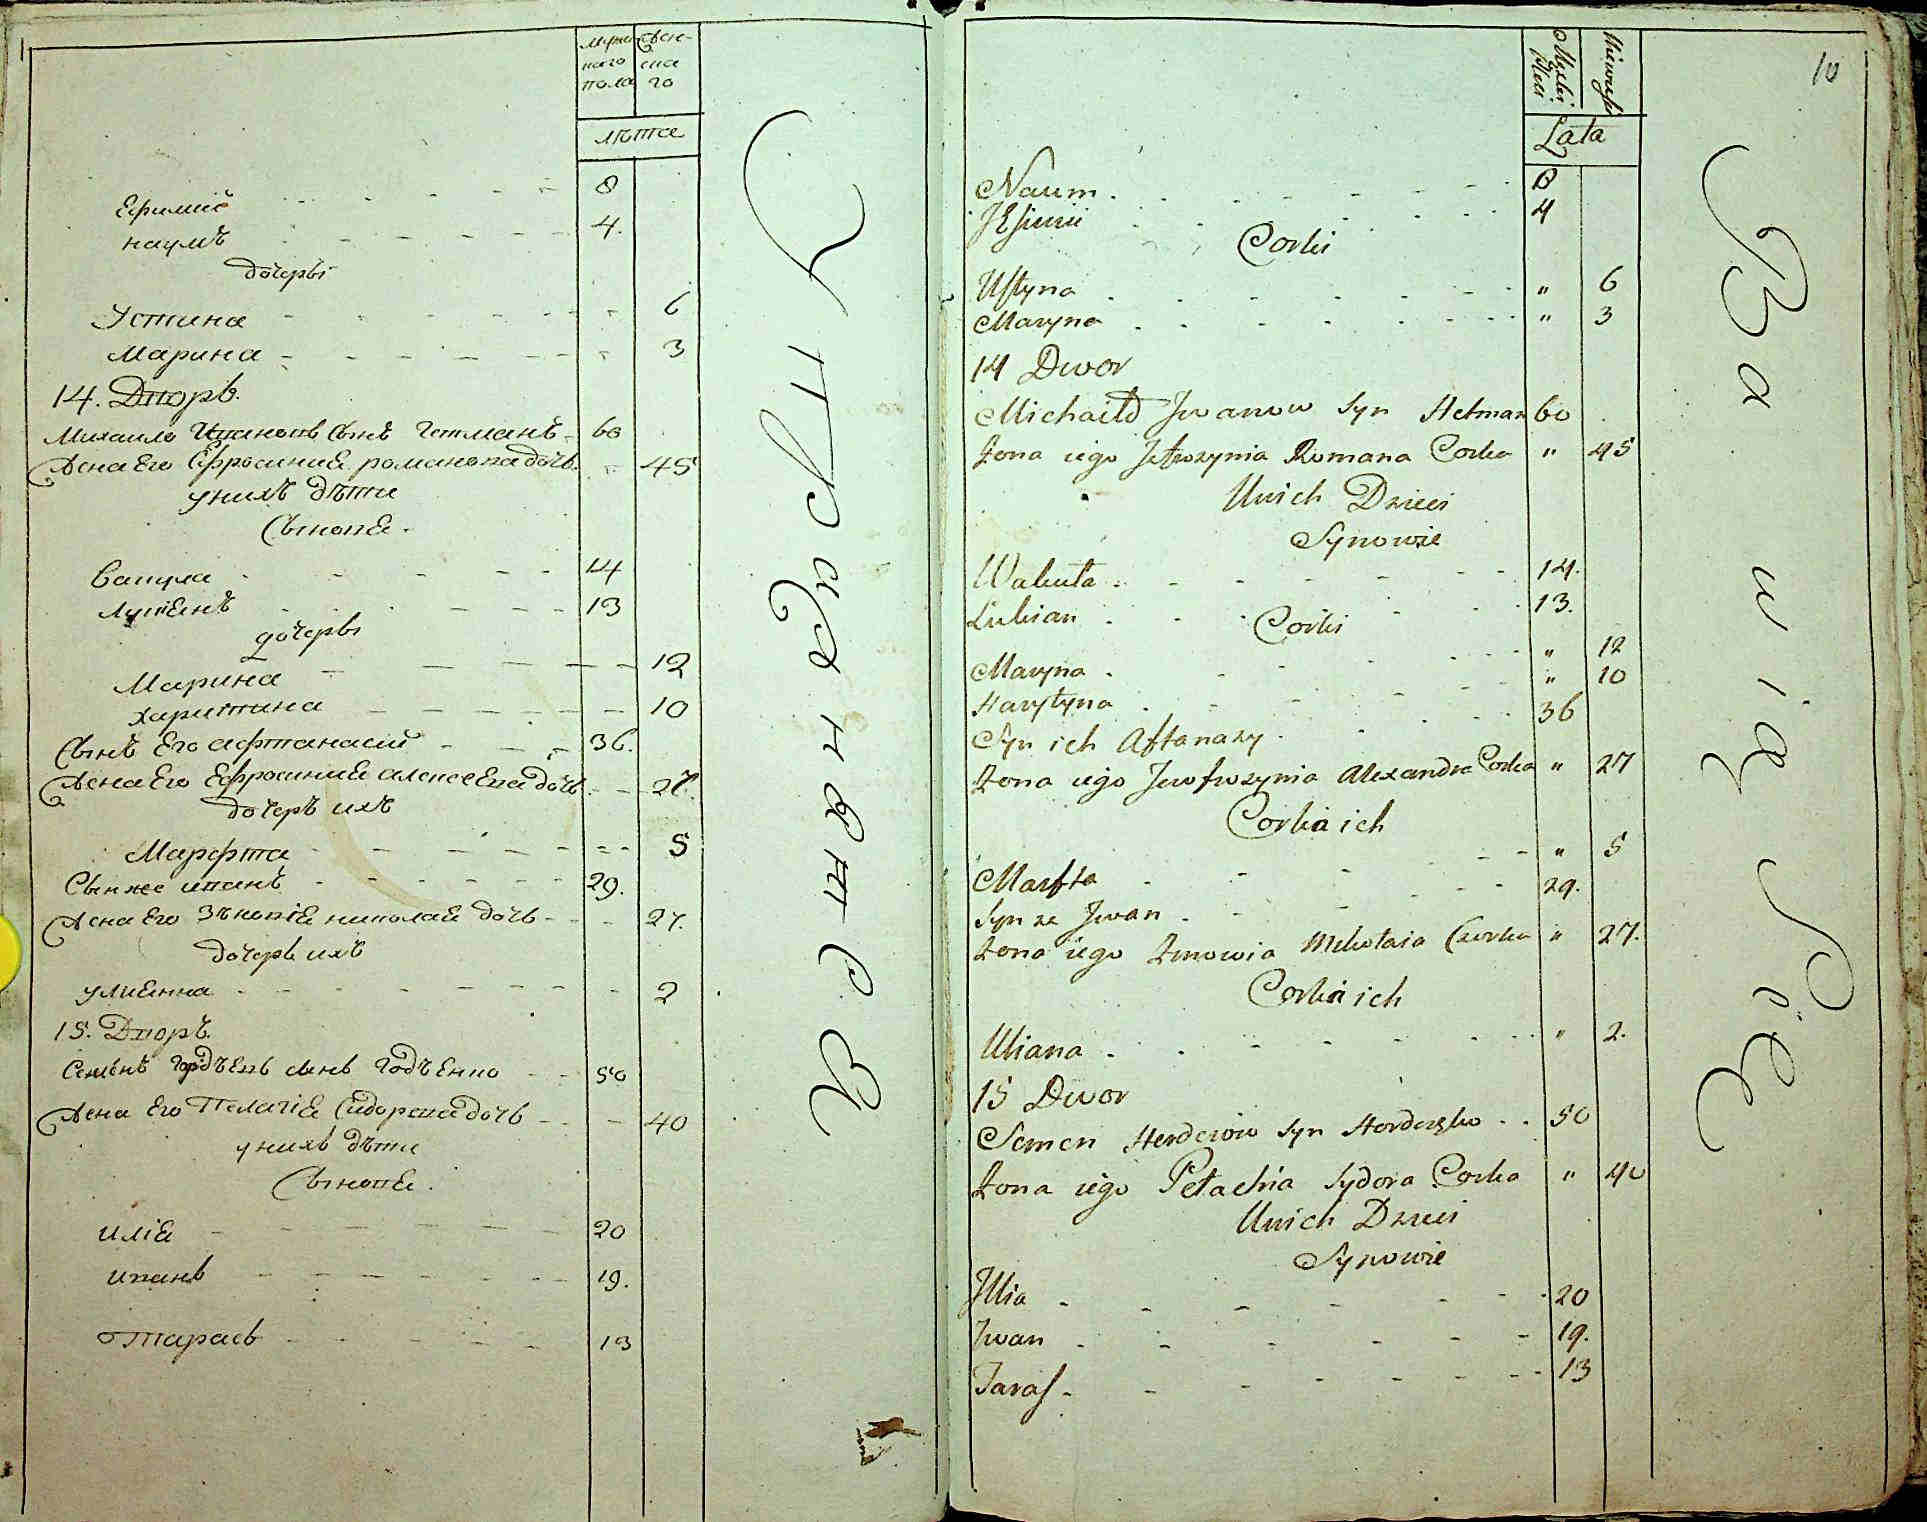 мужескаго пола
женскаго
лѣта
Ефимий 8
наумъ 4.
дочеры
Устина 6
Марина 3
14. Дворъ.
Михаило Ивановъ сынъ Гетманъ 60
Жена Его Ефросиния романова дочь 45
у нихъ дѣти
Сынове.
Вакула 14
Лукиенъ 13
дочеры
Марина 12
Харитина 10
Сынъ Его афтанасий 36.
Жена Его Ефросиния алексеева дочь 27.
дочеръ ихъ
Марфта 5
Сын же иванъ 29.
Жена Его Зѣновія николая дочь 27.
дочеръ ихъ
улиянна 2
15. Дворъ.
Семенъ Гордѣевъ сынъ 50
Жена Его Пелагія Сидорова дочь 40
у нихъ дѣти
Сынове.
илія 20
иванъ 19.
тарасъ 13
10
Męzkiey
Płci
Lata
Naum 8
Jefimii 4
Corki
Ustyna " 6
Maryna " 3
14 Dwor
Michaiło Jwanow syn Hetman 60
Żona iego Jefrozynia Romana Corka " 45
U nich Dzieci
Synowie
Wakuła 14.
Lukian 13.
Corki
Maryna " 12
Harytyna " 10
Syn ich Aftanazy 36
Żona iego Jewfrozynia Alexandra Corka " 27
Corka ich
Marfta " 5
Syn ze Jwan 29.
Żona iego Zinowia Mikołaia Czorka " 27.
Corka ich
Uliana " 2.
15 Dwor
Semen Herdeiow syn 50
Żona iego Pełachia Sydora Corka " 40
U nich Dzieci
Synowie
Jllia 20
Jwan 19.
Taras 13